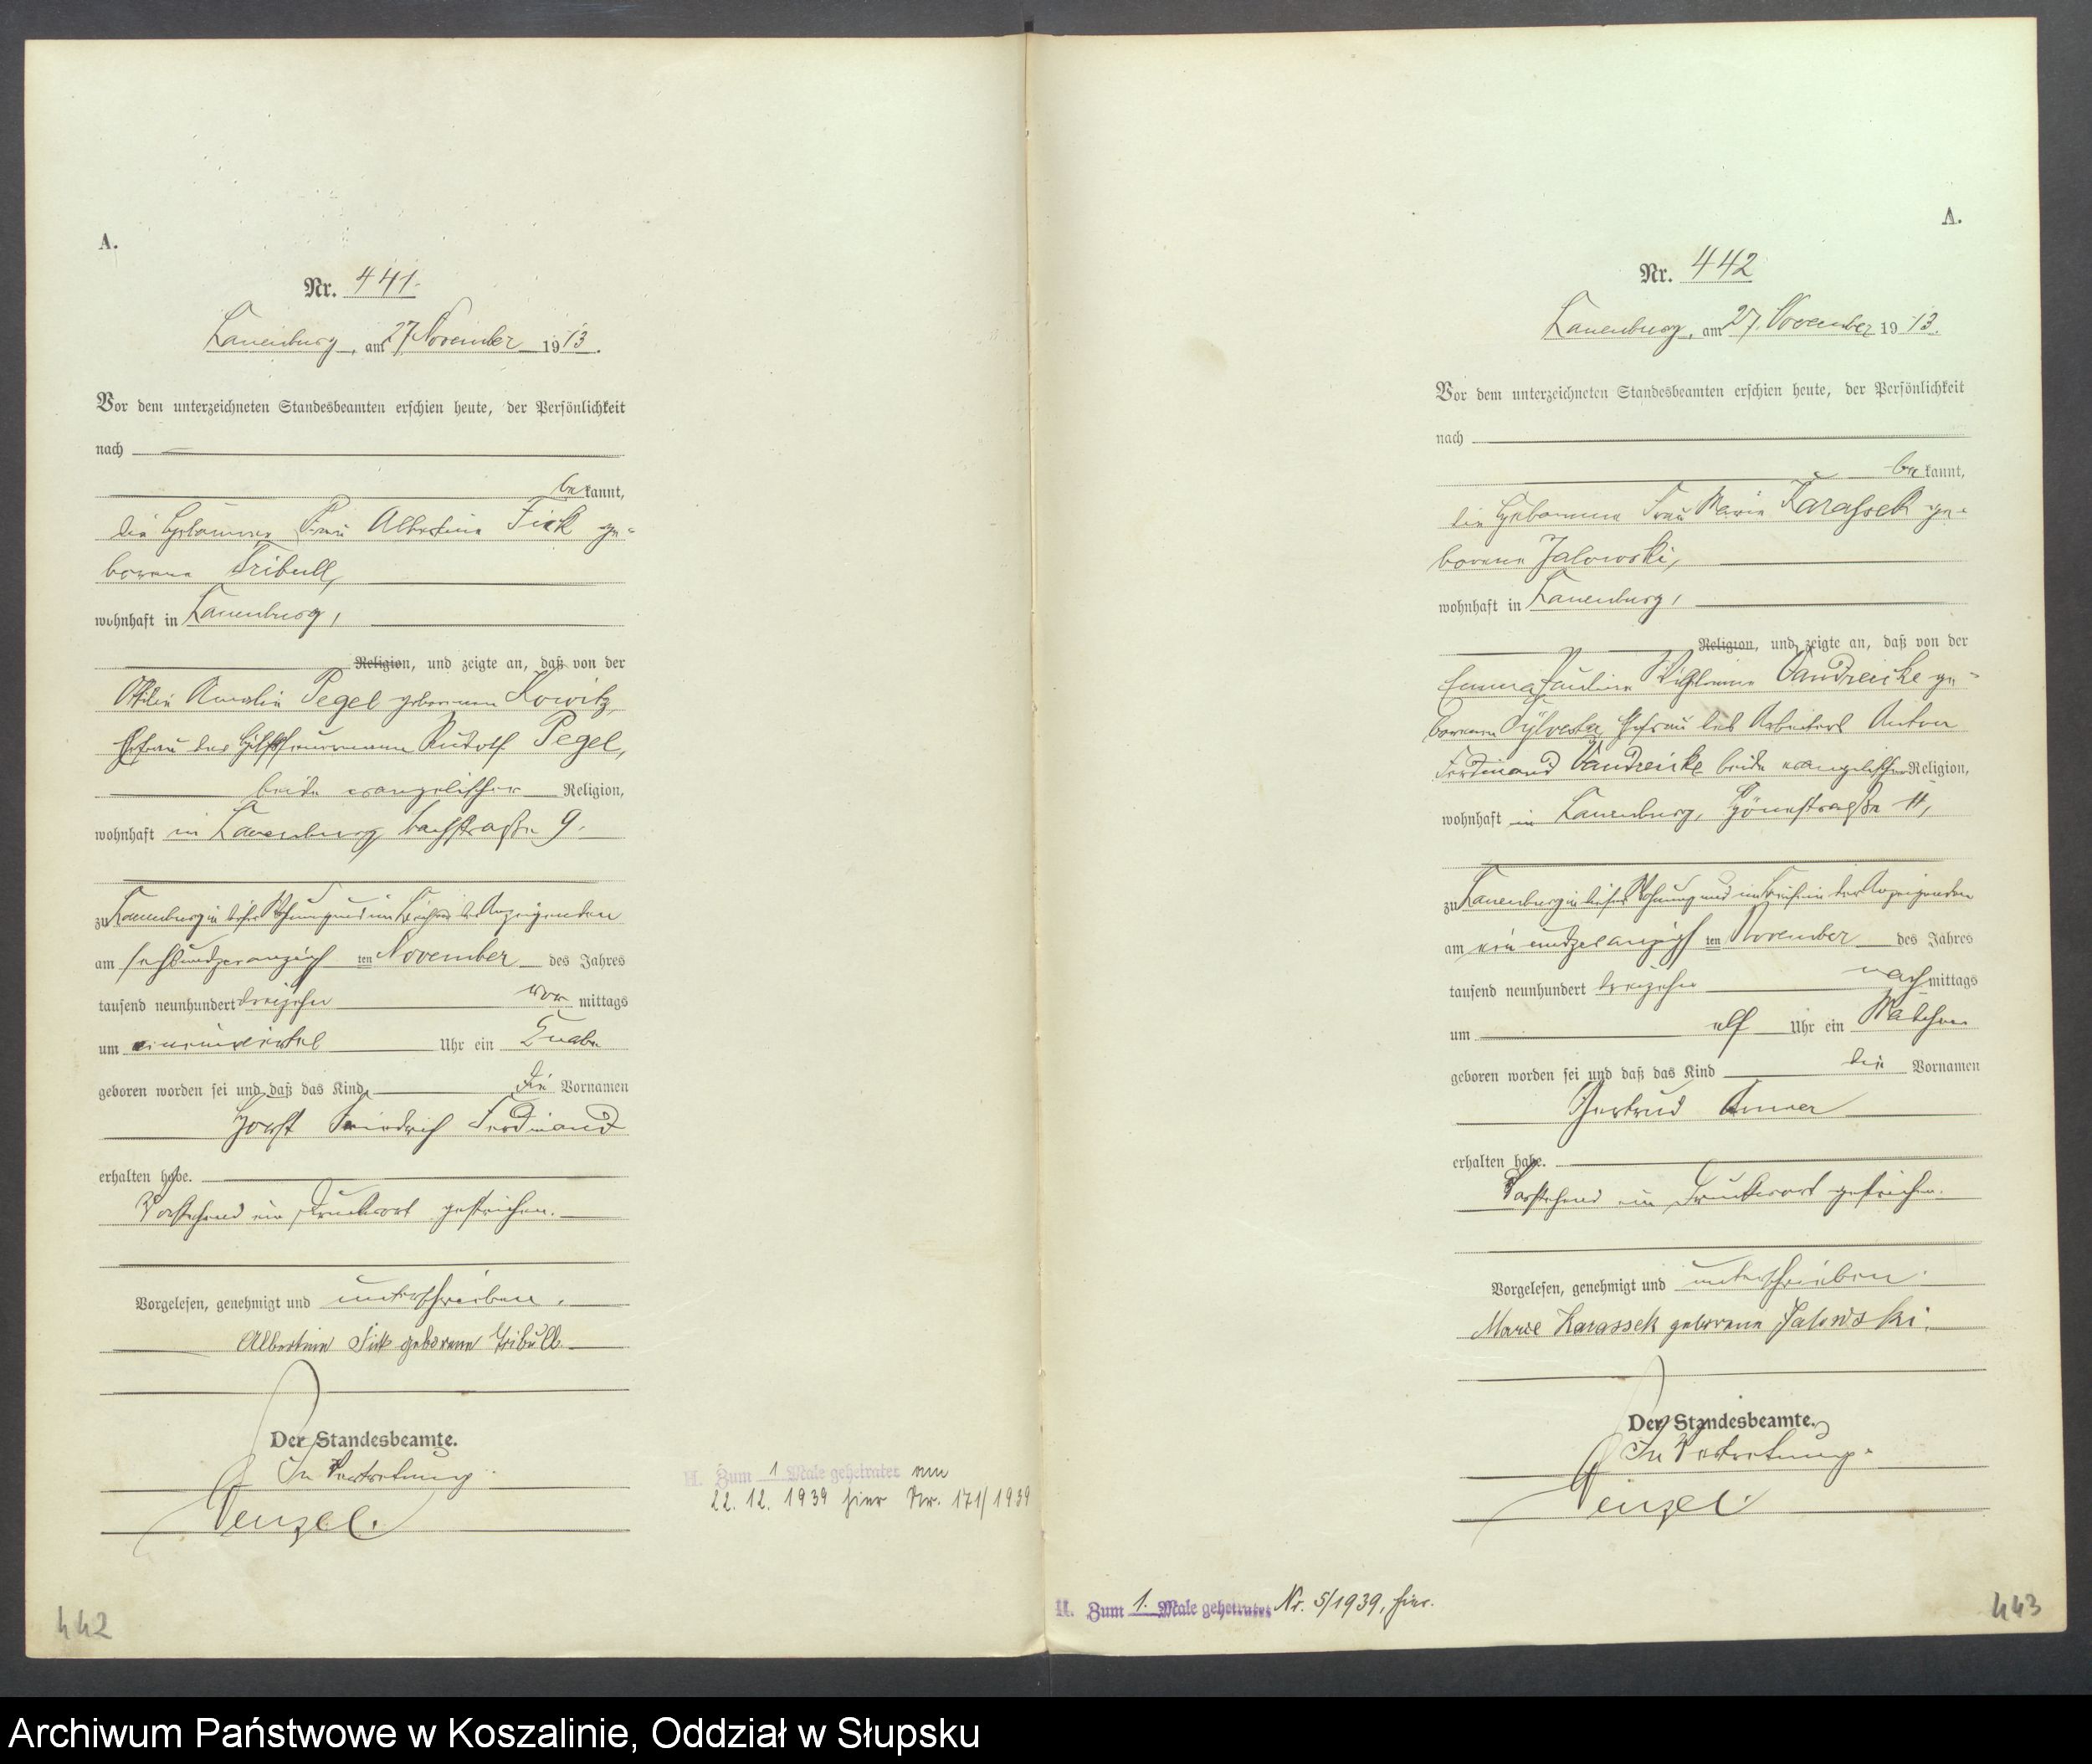 A.
Nr. 441.
Lauenburg, am 27 November 1913.
Vor dem unterzeichneten Standesbeamten erschien heute, der Persönlichkeit
nach
bekannt,
die Hebamme Frau Albertine Fick ge-
borene Tribull,
wohnhaft in Lauenburg,
Religion, und zeigte an, daß von der
Ottilie Amalie Pegel geborenen Kowitz,
Ehefrau des Rudolf Pegel,
beide evangelischer Religion,
wohnhaft in Lauenburg, Bachstraße 9.
zu Lauenburg in dieser Wohnung und im Beisein der Anzeigenden
am sechsundzwanzigsten November des Jahres
tausend neunhundert dreizehn vor mittags
um Uhr ein Knabe
geboren worden sei und daß das Kind die Vornamen
Horst Friedrich Ferdinand
erhalten habe.
Vorstehend ein Druckwort gestrichen.
Vorgelesen, genehmigt und unterschrieben.
Albertine Fick geborene Tribull.
Der Standesbeamte.
In Vertretung.
Wenzel.
H. Zum 1 Male geheiratet am
22. 12. 1939 hier Nr. 171/1939
442
A.
Nr. 442
Lauenburg, am 27. November 1913.
Vor dem unterzeichneten Standesbeamten erschien heute, der Persönlichkeit
nach
bekannt,
die Hebamme Frau Marie Karassek ge-
borene Jalowski,
wohnhaft in Lauenburg,
Religion, und zeigte an, daß von der
Emma Pauline Wilhelmine Vandreicke ge-
borenen Sylvester, Ehefrau des Arbeiters Anton
Ferdinand Vandreicke beide evangelischer Religion,
wohnhaft in Lauenburg, 11,
zu Lauenburg in dieser Wohnung und im Beisein der Anzeigenden
am einundzwanzigsten November des Jahres
tausend neunhundert dreizehn nachmittags
um elf Uhr ein Mädchen
geboren worden sei und daß das Kind die Vornamen
Gertrud Anna
erhalten habe.
Vorstehend ein Druckwort gestrichen.
Vorgelesen, genehmigt und unterschrieben.
Marie Karassek geborene Jalowski.
Der Standesbeamte.
In Vertretung.
Wenzel.
H. Zum 1. Male geheiratet Nr. 5/1939, hier.
443
Archiwum Państwowe w Koszalinie, Oddział w Słupsku